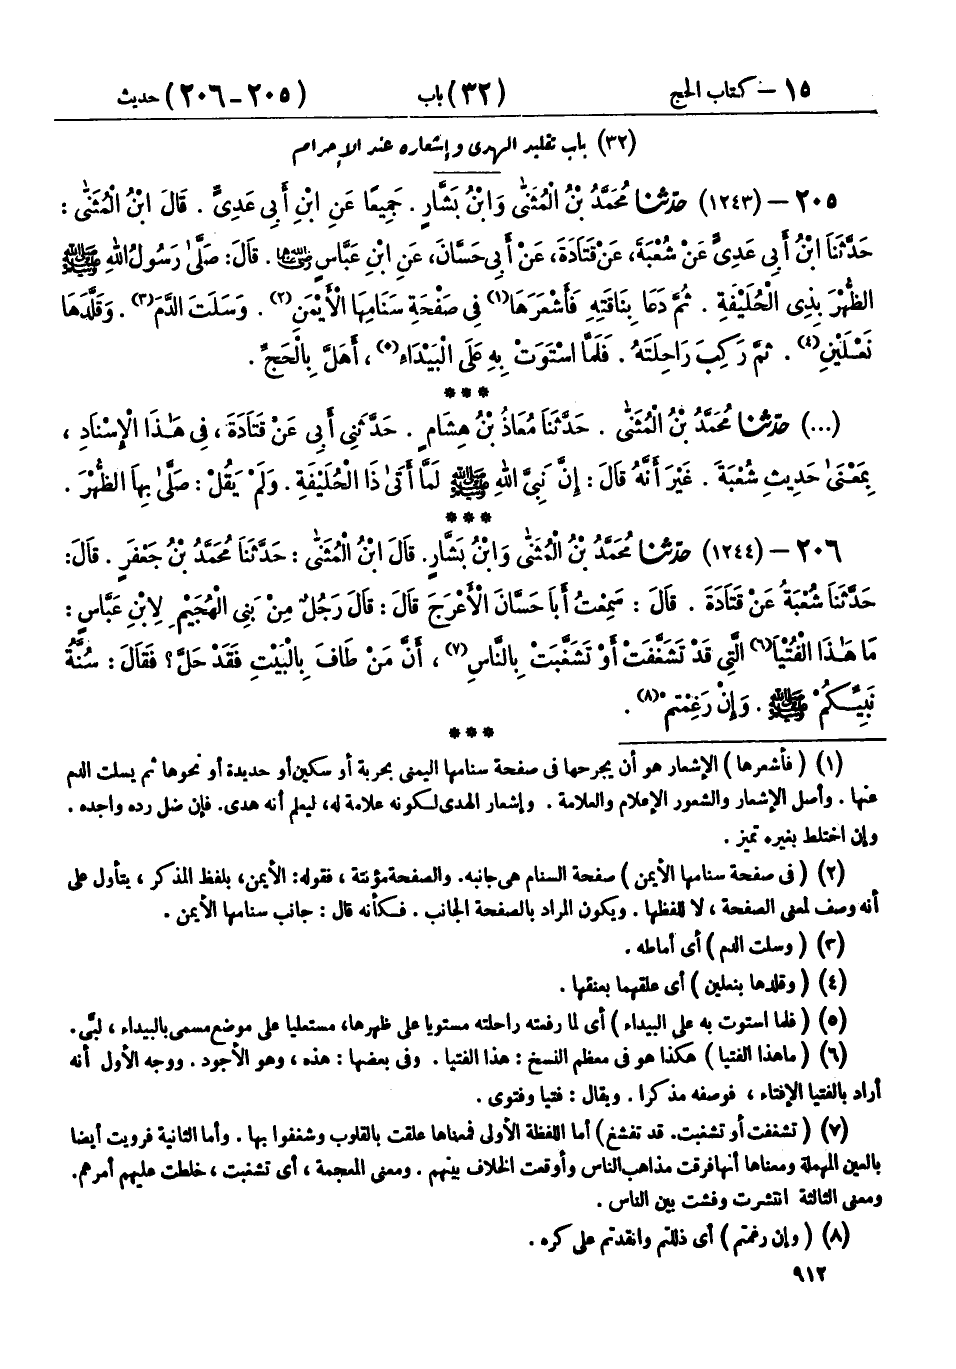 ١٥ – كتاب الحج (٣٢) باب (٢٠٥-٢٠٦) حديث
(٣٢) باب تقليد الهدى وإشعاره عند الإحرام
٢٠٥ – (١٢٤٣) حَدَّثَنَا مُحَمَّدُ بْنُ الْمُثَنَّىٰ وَابْنُ بَشَّارٍ . جَمِيعًا عَنِ ابْنِ أَبِي عَدِيٍّ . قَالَ ابْنُ الْمُثَنَّىٰ :
حَدَّثَنَا ابْنُ أَبِي عَدِيٍّ عَنْ شُعْبَةَ، عَنْ قَتَادَةَ، عَنْ أَبِي حَسَّانَ، عَنِ ابْنِ عَبَّاسٍ رضي الله عنهما . قَالَ: صَلَّىٰ رَسُولُ اللهِ ﷺ
الظُّهْرَ بِذِي الْحُلَيْفَةِ . ثُمَّ دَعَا بِنَاقَتِهِ فَأَشْعَرَهَا(١) فِي صَفْحَةِ سَنَامِهَا الْأَيْمَنِ(٢) . وَسَلَتَ الدَّمَ(٣) . وَقَلَّدَهَا
نَعْلَيْنِ(٤) . ثُمَّ رَكِبَ رَاحِلَتَهُ . فَلَمَّا اسْتَوَتْ بِهِ عَلَى الْبَيْدَاءِ(٥) ، أَهَلَّ بِالْحَجِّ .
***
(...) حَدَّثَنَا مُحَمَّدُ بْنُ الْمُثَنَّىٰ . حَدَّثَنَا مُعَاذُ بْنُ هِشَامٍ . حَدَّثَنِي أَبِي عَنْ قَتَادَةَ ، فِي هَـٰذَا الْإِسْنَادِ ،
بِمَعْنَىٰ حَدِيثِ شُعْبَةَ . غَيْرَ أَنَّهُ قَالَ : إِنَّ نَبِيَّ اللهِ ﷺ لَمَّا أَتَىٰ ذَا الْحُلَيْفَةِ . وَلَمْ يَقُلْ : صَلَّىٰ بِهَا الظُّهْرَ .
***
٢٠٦ – (١٢٤٤) حَدَّثَنَا مُحَمَّدُ بْنُ الْمُثَنَّىٰ وَابْنُ بَشَّارٍ. قَالَ ابْنُ الْمُثَنَّىٰ : حَدَّثَنَا مُحَمَّدُ بْنُ جَعْفَرٍ . قَالَ:
حَدَّثَنَا شُعْبَةُ عَنْ قَتَادَةَ . قَالَ : سَمِعْتُ أَبَا حَسَّانَ الْأَعْرَجَ قَالَ : قَالَ رَجُلٌ مِنْ بَنِي الْهُجَيْمِ لِابْنِ عَبَّاسٍ :
مَا هَـٰذَا الْفُتْيَا(٦) الَّتِي قَدْ تَشَغَّفَتْ أَوْ تَشَغَّبَتْ بِالنَّاسِ(٧) ، أَنَّ مَنْ طَافَ بِالْبَيْتِ فَقَدْ حَلَّ؟ فَقَالَ : سُنَّةُ
نَبِيِّكُمْ ﷺ . وَإِنْ رَغِمْتُمْ(٨) .
***
(١) ( فأشعرها ) الإشعار هو أن يجرحها فى صفحة سنامها اليمنى بحربة أو سكين أو حديدة أو نحوها ثم يسلت الدم
عنها . وأصل الإشعار والشعور الإعلام والعلامة . وإشعار الهدى لكونه علامة له، ليعلم أنه هدى. فإن ضل رده واجده .
وإن اختلط بغيره تميز .
(٢) ( فى صفحة سنامها الأيمن ) صفحة السنام هى جانبه. والصفحة مؤنثة ، فقوله: الأيمن، بلفظ المذكر ، يتأول على
أنه وصف لمعنى الصفحة ، لا للفظها . ويكون المراد بالصفحة الجانب . فكأنه قال : جانب سنامها الأيمن .
(٣) ( وسلت الدم ) أى أماطه .
(٤) ( وقلدها بنعلين ) أى علقهما بعنقها .
(٥) ( فلما استوت به على البيداء ) أى لما رفعته راحلته مستويا على ظهرها، مستعليا على موضع مسمى بالبيداء ، لبَّى.
(٦) ( ماهذا الفتيا ) هكذا هو فى معظم النسخ : هذا الفتيا . وفى بعضها : هذه ، وهو الأجود . ووجه الأول أنه
أراد بالفتيا الإفتاء ، فوصفه مذكرا . ويقال : فتيا وفتوى .
(٧) ( تشغفت أو تشغبت. قد تفشغ ) أما اللفظة الأولى فمعناها علقت بالقلوب وشغفوا بها . وأما الثانية فرويت أيضا
بالعين المهملة ومعناها أنها فرقت مذاهب الناس وأوقعت الخلاف بينهم . ومعنى المعجمة ، أى تشغبت ، خلطت عليهم أمرهم.
ومعنى الثالثة انتشرت وفشت بين الناس .
(٨) ( وإن رغمتم ) أى ذللتم وانقدتم على كره .
٩١٢